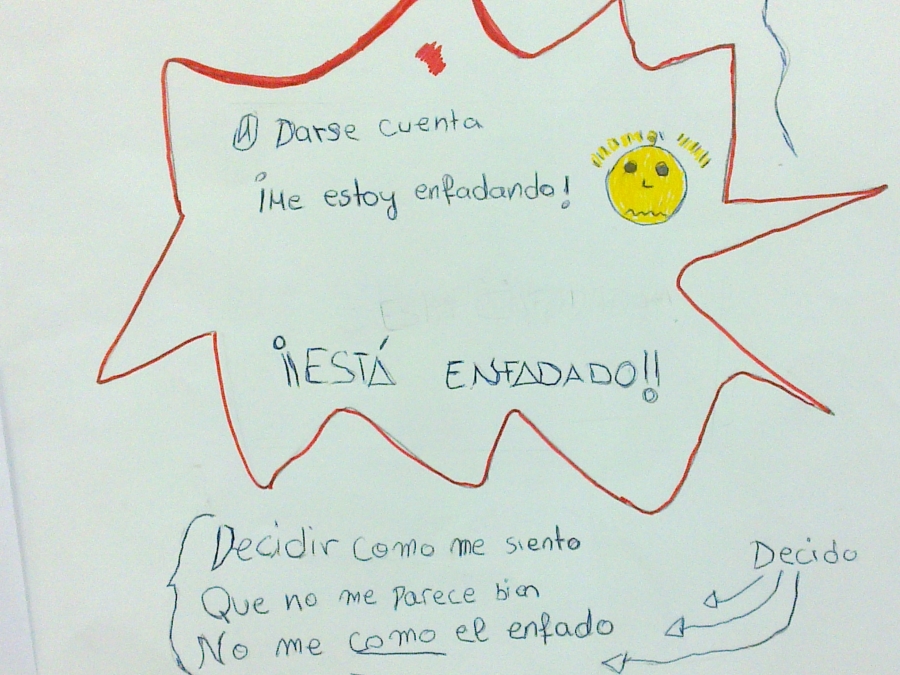 ① Darse cuenta
¡Me estoy enfadando!
¡¡ESTÁ ENFADADO!!
Decidir como me siento
Decido
Que no me parece bien
No me como el enfado